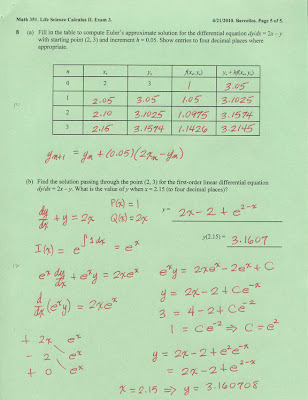 Math 351. Life Science Calculus II. Exam 3. 6/21/2010. Barcellos. Page 5 of 5.
8 (a) Fill in the table to compute Euler's approximate solution for the differential equation dy/dx = 2x – y
with starting point (2, 3) and increment h = 0.05. Show entries to four decimal places where
appropriate.
n xₙ yₙ f(xₙ, yₙ) yₙ + hf(xₙ, yₙ)
0 2 3 1 3.05
1 2.05 3.05 1.05 3.1025
2 2.10 3.1025 1.0975 3.1574
3 2.15 3.1574 1.1426 3.2145
yₙ₊₁ = yₙ + (0.05)(2xₙ - yₙ)
(b) Find the solution passing through the point (2, 3) for the first-order linear differential equation
dy/dx = 2x – y. What is the value of y when x = 2.15 (to four decimal places)?
dy/dx + y = 2x P(x) = 1 Q(x) = 2x
y = 2x - 2 + e^(2-x)
I(x) = e^(∫1dx) = e^x
y(2.15) = 3.1607
e^x dy/dx + e^x y = 2xe^x
d/dx (e^x y) = 2xe^x
+ 2x e^x
- 2 e^x
+ 0 e^x
e^x y = 2xe^x - 2e^x + C
y = 2x - 2 + Ce^(-x)
3 = 4 - 2 + Ce^(-2)
1 = Ce^(-2) ⇒ C = e^2
y = 2x - 2 + e^2 e^(-x)
= 2x - 2 + e^(2-x)
x = 2.15 ⇒ y = 3.160708